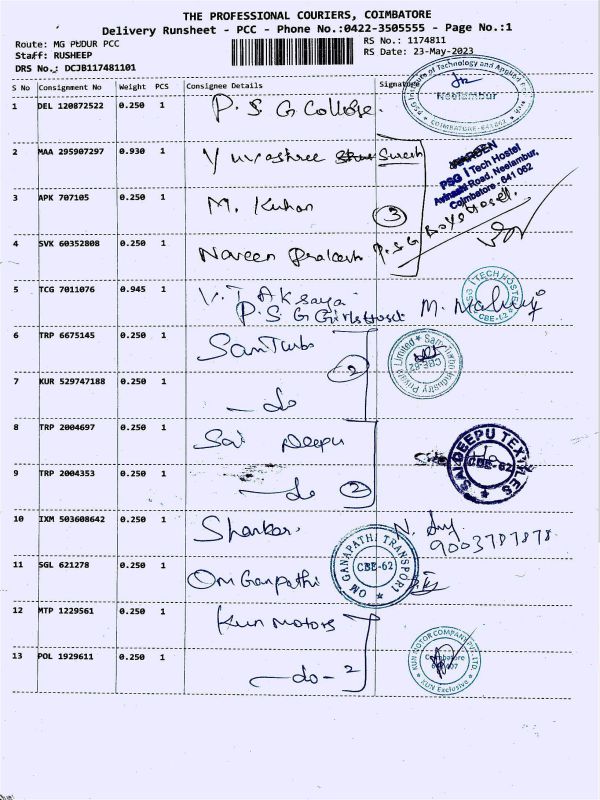 THE PROFESSIONAL COURIERS, COIMBATORE
Delivery Runsheet - PCC - Phone No.:0422-3505555 - Page No.:1
Route: MG PUDUR PCC
RS No.: 1174811
Staff: RUSHEEP
RS Date: 23-May-2023
DRS No.: DCJB117481101
S No Consignment No Weight PCS Consignee Details Signature
1 DEL 120872522 0.250 1 P.S G College.
Institute of Technology and Applied
Neelambur
COIMBATORE-641062
2 MAA 295907297 0.930 1 Yuvashree Suresh
WARDEN
PSG iTech Hostel
Avinashi Road, Neelambur,
Coimbatore - 641 062
3 APK 707105 0.250 1 M. Kuhan
3
P.S.G Boys Hostel.
4 SVK 60352808 0.250 1 Naveen Prakash
5 TCG 7011076 0.945 1 V.T Aksaya
P.S G Girls Hostel
PSG ITECH HOSTEL
CBE-62
6 TRP 6675145 0.250 1 SanTurbo
2
SanTurbo Industry Private Limited
CBE-62
7 KUR 529747188 0.250 1 - do
8 TRP 2004697 0.250 1 Sai Deepu
SAI DEEPU TEXTILES
CBE-62
9 TRP 2004353 0.250 1 - do 2
10 IXM 503608642 0.250 1 Shankar.
9003787878
11 SGL 621278 0.250 1 Om Ganpathi
OM GANAPATHI TRANSPORT
CBE-62
12 MTP 1229561 0.250 1 Kun Motors
13 POL 1929611 0.250 1 - do - 2
KUN MOTOR COMPANY PVT. LTD.
Coimbatore
KUN Exclusive